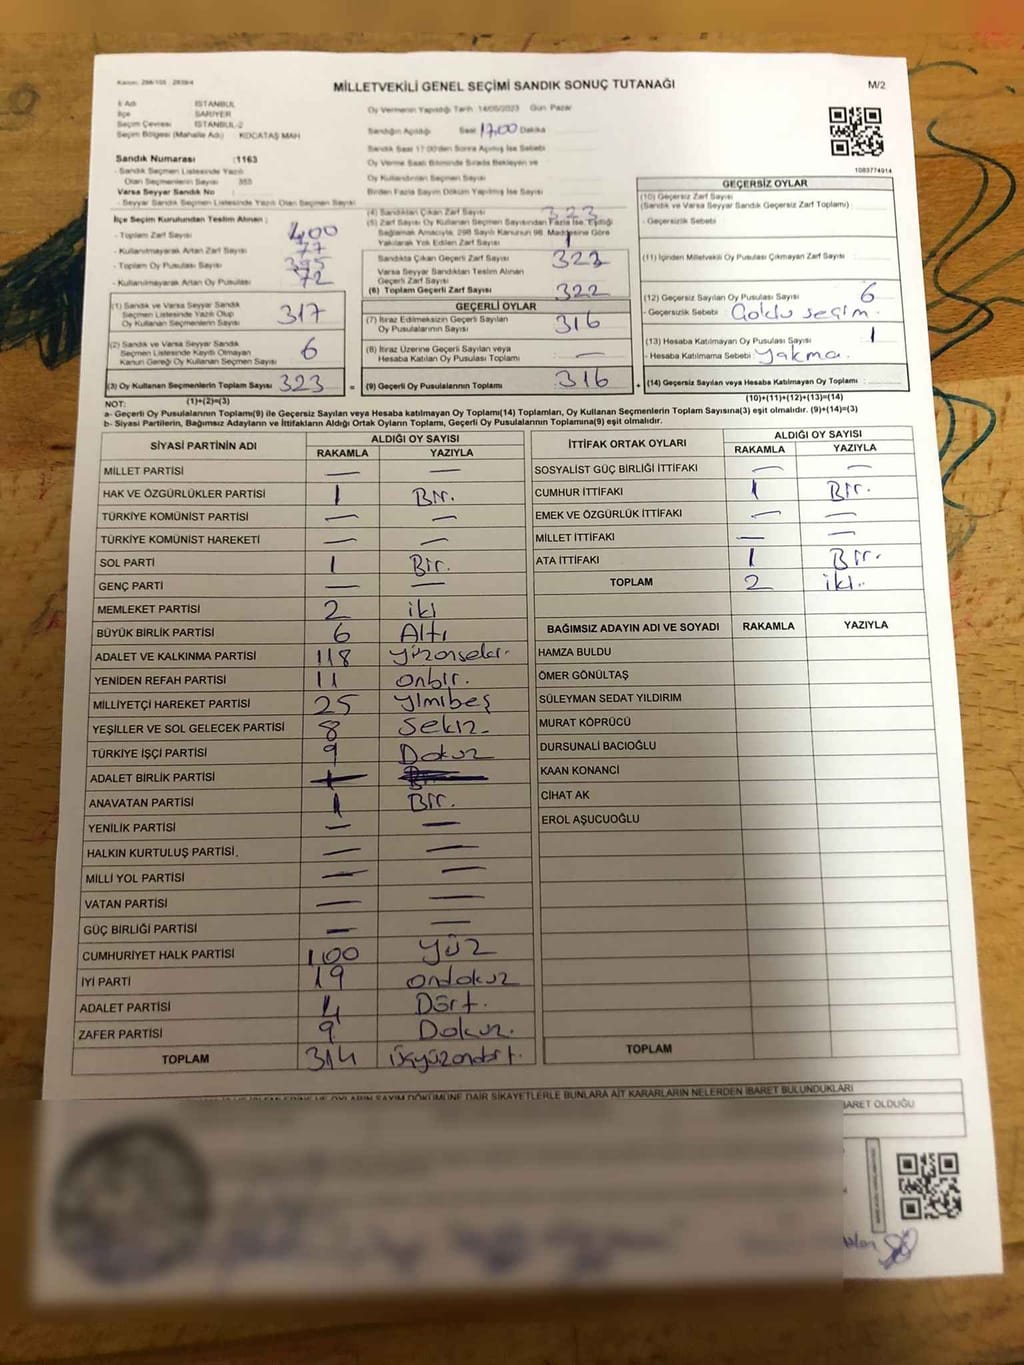 Kanun: 298/105 2839/4
MİLLETVEKİLİ GENEL SEÇİMİ SANDIK SONUÇ TUTANAĞI
M/2
İl Adı : İSTANBUL
İlçe : SARIYER
Seçim Çevresi : İSTANBUL-2
Seçim Bölgesi (Mahalle Adı) : KOCATAŞ MAH
Sandık Numarası :1163
- Sandık Seçmen Listesinde Yazılı
Olan Seçmenlerin Sayısı : 355
Varsa Seyyar Sandık No :
- Seyyar Sandık Seçmen Listesinde Yazılı Olan Seçmen Sayısı :
Oy Vermenin Yapıldığı Tarih 14/05/2023 Gün Pazar
Sandığın Açıldığı Saat 17.00 Dakika
Sandık Saat 17:00'den Sonra Açılmış İse Sebebi
Oy Verme Saati Bitiminde Sırada Bekleyen ve
Oy Kullandırılan Seçmen Sayısı
Birden Fazla Sayım Döküm Yapılmış İse Sayısı
1083774914
İlçe Seçim Kurulundan Teslim Alınan :
- Toplam Zarf Sayısı : 400
- Kullanılmayarak Artan Zarf Sayısı : 77
- Toplam Oy Pusulası Sayısı : 395
- Kullanılmayarak Artan Oy Pusulası : 72
(1) Sandık ve Varsa Seyyar Sandık
Seçmen Listesinde Yazılı Olup
Oy Kullanan Seçmenlerin Sayısı 317
(2) Sandık ve Varsa Seyyar Sandık
Seçmen Listesinde Kayıtlı Olmayan
Kanun Gereği Oy Kullanan Seçmen Sayısı 6
(3) Oy Kullanan Seçmenlerin Toplam Sayısı 323
(4) Sandıktan Çıkan Zarf Sayısı 323
(5) Zarf Sayısı Oy Kullanan Seçmen Sayısından Fazla İse, Eşitliği
Sağlamak Amacıyla, 298 Sayılı Kanunun 98. Maddesine Göre
Yakılarak Yok Edilen Zarf Sayısı 1
Sandıkta Çıkan Geçerli Zarf Sayısı 322
Varsa Seyyar Sandıktan Teslim Alınan
Geçerli Zarf Sayısı
(6) Toplam Geçerli Zarf Sayısı 322
GEÇERLİ OYLAR
(7) İtiraz Edilmeksizin Geçerli Sayılan
Oy Pusulalarının Sayısı 316
(8) İtiraz Üzerine Geçerli Sayılan veya
Hesaba Katılan Oy Pusulası Toplamı —
= (9) Geçerli Oy Pusulalarının Toplamı 316 +
GEÇERSİZ OYLAR
(10) Geçersiz Zarf Sayısı
(Sandık ve Varsa Seyyar Sandık Geçersiz Zarf Toplamı)
- Geçersizlik Sebebi :
(11) İçinden Milletvekili Oy Pusulası Çıkmayan Zarf Sayısı
(12) Geçersiz Sayılan Oy Pusulası Sayısı 6
- Geçersizlik Sebebi : Çoklu seçim.
(13) Hesaba Katılmayan Oy Pusulası Sayısı 1
- Hesaba Katılmama Sebebi : Yakma.
(14) Geçersiz Sayılan veya Hesaba Katılmayan Oy Toplamı
NOT: (1)+(2)=(3) (10)+(11)+(12)+(13)=(14)
a- Geçerli Oy Pusulalarının Toplamı(9) ile Geçersiz Sayılan veya Hesaba katılmayan Oy Toplamı(14) Toplamları, Oy Kullanan Seçmenlerin Toplam Sayısına(3) eşit olmalıdır. (9)+(14)=(3)
b- Siyasi Partilerin, Bağımsız Adayların ve İttifakların Aldığı Ortak Oyların Toplamı, Geçerli Oy Pusulalarının Toplamına(9) eşit olmalıdır.
SİYASİ PARTİNİN ADI ALDIĞI OY SAYISI
RAKAMLA YAZIYLA
MİLLET PARTİSİ — —
HAK VE ÖZGÜRLÜKLER PARTİSİ 1 Bir.
TÜRKİYE KOMÜNİST PARTİSİ — —
TÜRKİYE KOMÜNİST HAREKETİ — —
SOL PARTİ 1 Bir.
GENÇ PARTİ — —
MEMLEKET PARTİSİ 2 iki
BÜYÜK BİRLİK PARTİSİ 6 Altı
ADALET VE KALKINMA PARTİSİ 118 Yüzonsekiz.
YENİDEN REFAH PARTİSİ 11 onbir.
MİLLİYETÇİ HAREKET PARTİSİ 25 Yimibeş
YEŞİLLER VE SOL GELECEK PARTİSİ 8 Sekiz.
TÜRKİYE İŞÇİ PARTİSİ 9 Dokuz
ADALET BİRLİK PARTİSİ
ANAVATAN PARTİSİ 1 Bir.
YENİLİK PARTİSİ — —
HALKIN KURTULUŞ PARTİSİ — —
MİLLİ YOL PARTİSİ — —
VATAN PARTİSİ — —
GÜÇ BİRLİĞİ PARTİSİ — —
CUMHURİYET HALK PARTİSİ 100 Yüz
İYİ PARTİ 19 ondokuz
ADALET PARTİSİ 4 Dört.
ZAFER PARTİSİ 9 Dokuz.
TOPLAM 314 Üçyüzondört.
İTTİFAK ORTAK OYLARI ALDIĞI OY SAYISI
RAKAMLA YAZIYLA
SOSYALİST GÜÇ BİRLİĞİ İTTİFAKI — —
CUMHUR İTTİFAKI 1 Bir.
EMEK VE ÖZGÜRLÜK İTTİFAKI — —
MİLLET İTTİFAKI — —
ATA İTTİFAKI 1 Bir.
TOPLAM 2 iki.
BAĞIMSIZ ADAYIN ADI VE SOYADI RAKAMLA YAZIYLA
HAMZA BULDU
ÖMER GÖNÜLTAŞ
SÜLEYMAN SEDAT YILDIRIM
MURAT KÖPRÜCÜ
DURSUNALİ BACIOĞLU
KAAN KONANCİ
CİHAT AK
EROL AŞUCUOĞLU
TOPLAM
OYLARIN SAYIM DÖKÜMÜNE DAİR ŞİKAYETLERLE BUNLARA AİT KARARLARIN NELERDEN İBARET BULUNDUKLARI
İBARET OLDUĞU